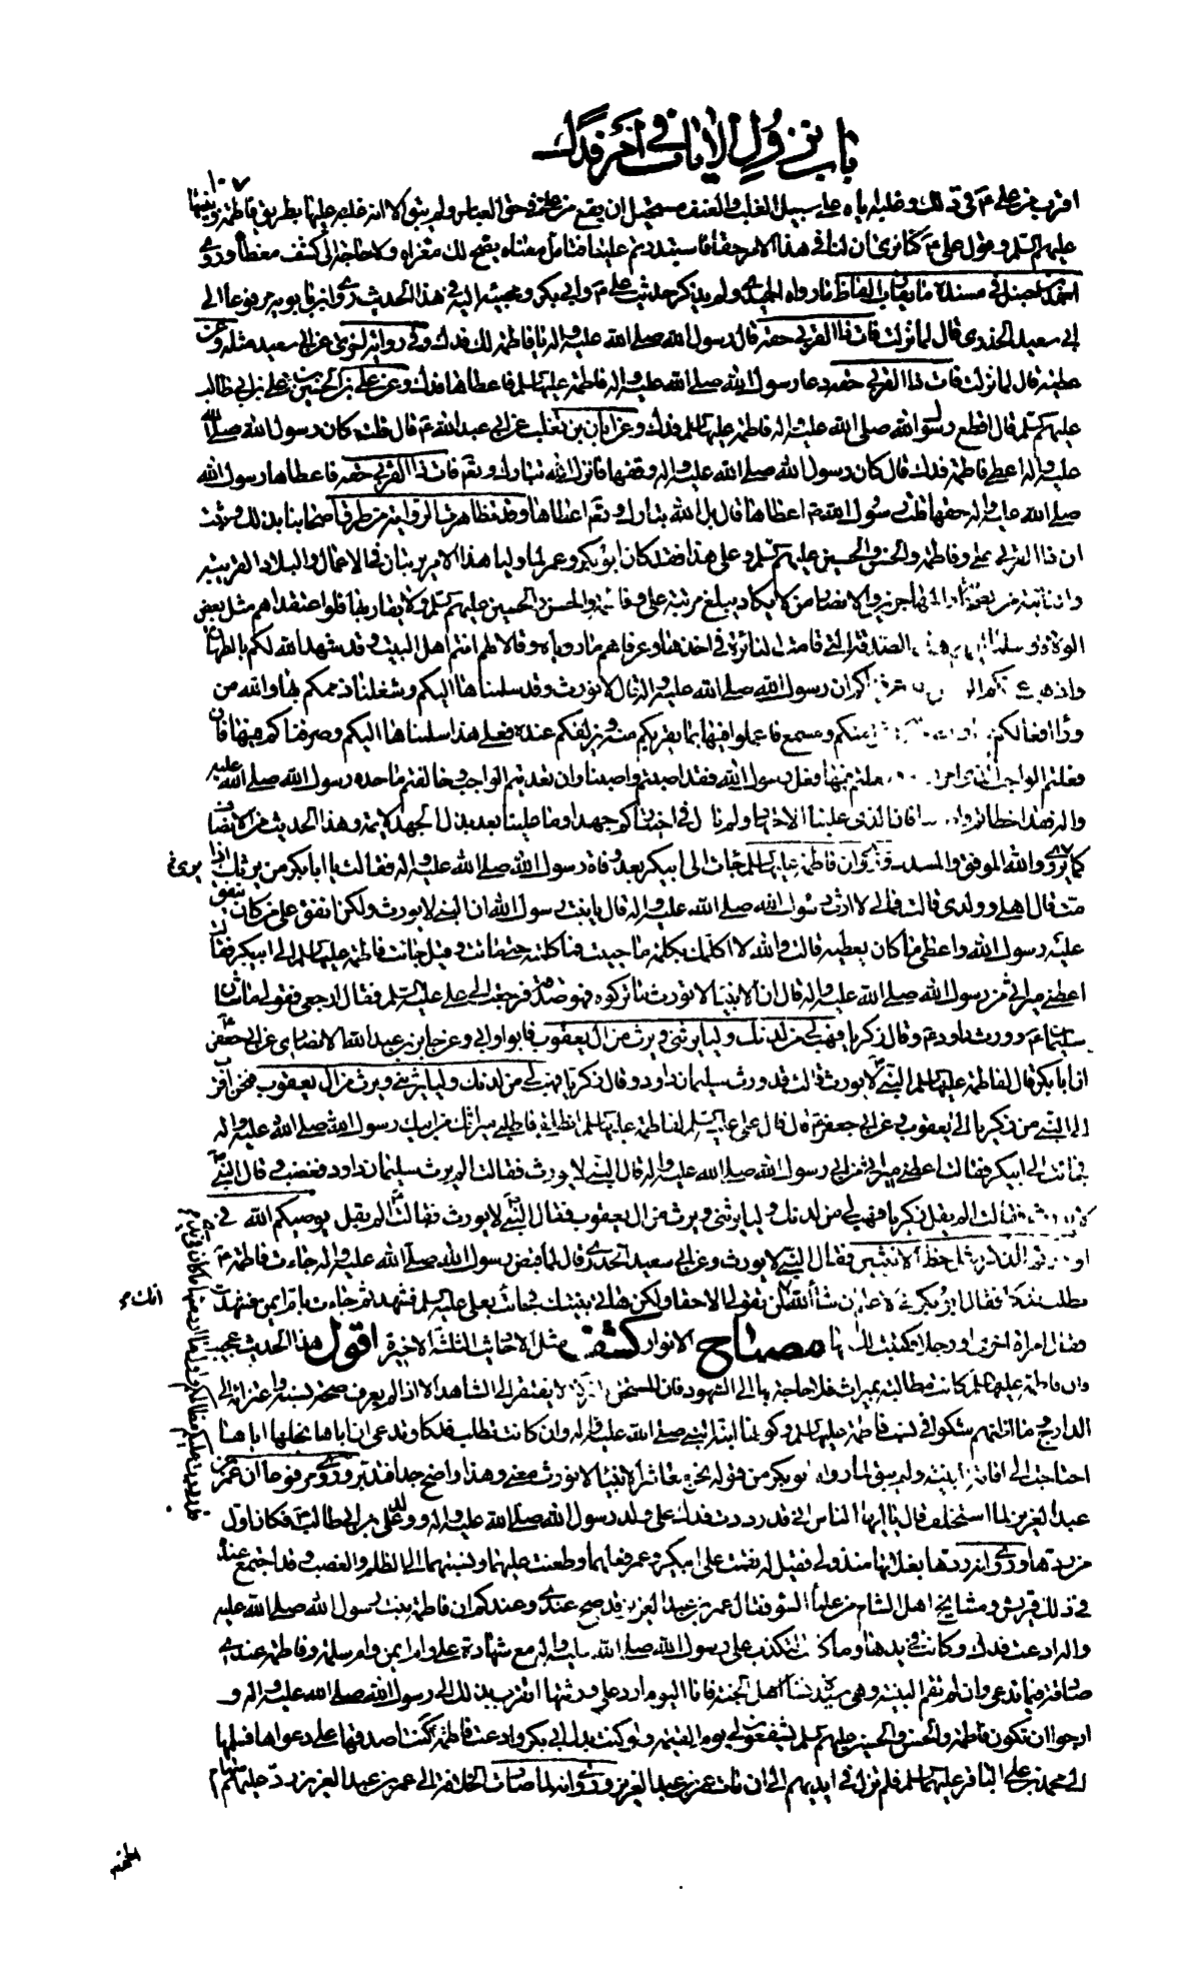 باب نزول الايات في امر فدك
١٠٧
اقرب من علي ع في ذلك وغلبه اياه على سبيل الغلب والعنف مستحيل ان يقع من علي في حق العباس ولم يبق الا انه غلبه عليها بطريق فاطمة وبنيها
عليهم السلم وقول علي ع كنا نرى ان لنا في هذا الامر حقا فاستبددتم علينا فتامل معناه يتضح لك مغزاه ولا حاجة الى كشف مغطاه وروى
احمد بن حنبل في مسنده ما يقارب الفاظ ما رواه الحميدي ولم يذكر حديث علي ع وابي بكر ومجيئه اليه في هذا الحديث روى ابن بابويه مرفوعا الى
ابي سعيد الخدري قال لما نزلت فات ذا القربى حقه قال رسول الله صلى الله عليه واله يا فاطمة لك فدك وفي رواية اخرى عن ابي سعيد مثله وعن
عطية قال لما نزلت فات ذا القربى حقه دعا رسول الله صلى الله عليه واله فاطمة عليها السلم فاعطاها فدك وعن علي بن الحسين بن علي بن ابي طالب
عليهم السلم قال اقطع رسول الله صلى الله عليه واله فاطمة عليها السلم فدك وعن ابان بن تغلب عن ابي عبد الله ع قال قلت كان رسول الله صلى الله
عليه واله اعطى فاطمة فدك قال كان رسول الله صلى الله عليه واله وقفها فانزل الله تبارك وتعم فات ذا القربى حقه فاعطاها رسول الله
صلى الله عليه واله حقها قلت رسول الله ص اعطاها قال بل الله تبارك وتعم اعطاها وقد تظاهرت الرواية من طرق اصحابنا بذلك وثبت
ان ذا القربى علي وفاطمة والحسن والحسين عليهم السلم وعلى هذا فقد كان ابو بكر وعمر لما وليا هذا الامر يرتبان في الاعمال والبلاد القريبة
والنائية من الصحابة والمهاجرين والانصار من لا يكاد يبلغ مرتبة علي وفاطمة والحسن والحسين عليهم السلم ولا يقاربها فلو اعتقداهم مثل بعض
الولاة وسلما اليهم هذه الصدقة التي قامت النائرة في اخذها وعرفاهم ما روياه وقالا لهم انتم اهل البيت وقد شهد الله لكم بالطهارة
واذهب عنكم الرجس وقد عرفناكم ان رسول الله صلى الله عليه واله قال لا نورث وقد سلمناها اليكم وشغلنا ذممكم بها والله من
وراء افعالكم منكم ومسمع فاعملوا فيها بما يقربكم منه ويزلفكم عنده فعلى هذا سلمناها اليكم وصرفناكم فيها فان
فعلتم الواجب الذي امرتم وفعلتم فيها فعل رسول الله فقد اصبتم واصبنا وان تعديتم الواجب وخالفتم ما حده رسول الله صلى الله عليه
واله فقد اخطاتم واصبنا فان الذي علينا الاجتهاد ولم نال في اختياركم جهدا وما علينا بعد بذل الجهد لائمة وهذا الحديث من الانصاف
كما يروى والله الموفق والمسدد وروى ان فاطمة عليها السلم جاءت الى ابي بكر بعد وفاة رسول الله صلى الله عليه واله فقالت يا ابا بكر من يرثك اذا
مت قال اهلي وولدي قالت فمالي لا ارث رسول الله صلى الله عليه واله قال يا بنت رسول الله ان النبي لا يورث ولكن انفق على من كان ينفق
عليه رسول الله واعطي ما كان يعطيه قالت والله لا اكلمك بكلمة ما حييت فما كلمته حتى ماتت وقيل جاءت فاطمة عليها السلم الى ابي بكر فقالت
اعطني ميراثي من رسول الله صلى الله عليه واله قال ان الانبياء لا نورث ما تركوه فهو صدقة فرجعت الى علي عليه السلم فقال ارجعي فقولي ما شان
سليمان ع وورث داود ع وقال زكريا فهب لي من لدنك وليا يرثني ويرث من ال يعقوب فابوا وابى وعن جابر بن عبد الله الانصاري عن ابي جعفر ع
ان ابا بكر قال لفاطمة عليها السلم النبي ص لا يورث قالت قد ورث سليمان داود وقال زكريا فهب لي من لدنك وليا يرثني ويرث من ال يعقوب فنحن اقرب
الى النبي من زكريا الى يعقوب وعن ابي جعفر ع قال قال علي عليه السلم لفاطمة عليها السلم انطلقي فاطلبي ميراثك من ابيك رسول الله صلى الله عليه واله
فجاءت الى ابي بكر فقالت اعطني ميراثي من ابي رسول الله صلى الله عليه واله قال النبي لا يورث فقالت الم يرث سليمان داود فغضب وقال النبي ص
لا يورث فقالت الم يقل زكريا فهب لي من لدنك وليا يرثني ويرث من ال يعقوب فقال النبي ص لا يورث فقالت الم يقل يوصيكم الله في
اولادكم للذكر مثل حظ الانثيين فقال النبي لا يورث وعن ابي سعيد الخدري قال لما قبض رسول الله صلى الله عليه واله جاءت فاطمة ع
تطلب فدكا فقال ابو بكر اني لاعلم ان شاء الله لن تقولي الا حقا ولكن هاتي بينتك فجاءت بعلي عليه السلم فشهد ثم جاءت بام ايمن فشهدت
فقال امراة اخرى او رجلا فكتبت لك بها مصباح الانوار كشف مثل الاحاديث الثلثة الاخيرة اقول هذا الحديث عجيب
وان فاطمة عليها السلم كانت مطالبة بميراث فلا حاجة بها الى الشهود فان المستحق للتركة لا يفتقر الى الشاهد الا اذا لم يعرف صحة نسبه واعتزائه الى
الدارج وما اظنهم شكوا في نسب فاطمة عليها السلم وكونها ابنة النبي صلى الله عليه واله وان كانت تطلب فدكا وتدعي ان اباها نحلها اياها
احتاجت الى اقامة البينة ولم يبق لما رواه ابو بكر من قوله نحن معاشر الانبياء لا نورث معنى وهذا واضح جدا فتدبر وروى مرفوعا ان عمر بن
عبد العزيز لما استخلف قال يا ايها الناس اني قد رددت فدك على ولد رسول الله صلى الله عليه واله وولد علي بن ابي طالب ع فكان اول
من ردها وروى انه ردها بغلاتها منذ ولي فقيل له نقمت على ابي بكر وعمر فعلهما وطعنت عليهما ونسبتهما الى الظلم والغصب وقد اجتمع عنده
في ذلك قريش ومشايخ اهل الشام من علماء السوء فقال عمر بن عبد العزيز قد صح عندي وعندكم ان فاطمة بنت رسول الله صلى الله عليه
واله ادعت فدك وكانت في يدها وما كانت لتكذب على رسول الله صلى الله عليه واله مع شهادة علي وام ايمن وام سلمة وفاطمة عندي
صادقة فيما تدعي وان لم تقم البينة وهي سيدة نساء اهل الجنة فانا اليوم ارد على ورثتها اتقرب بذلك الى رسول الله صلى الله عليه واله و
ارجو ان تكون فاطمة والحسن والحسين عليهم السلم يشفعون لي يوم القيمة ولو كنت بدل ابي بكر وادعت فاطمة كنت اصدقها على دعواها فسلمها
الى محمد بن علي الباقر عليهما السلم فلم تزل في ايديهم الى ان مات عمر بن عبد العزيز وروى انه لما صارت الخلافة الى عمر بن عبد العزيز رد عليهم سهام
الخمس